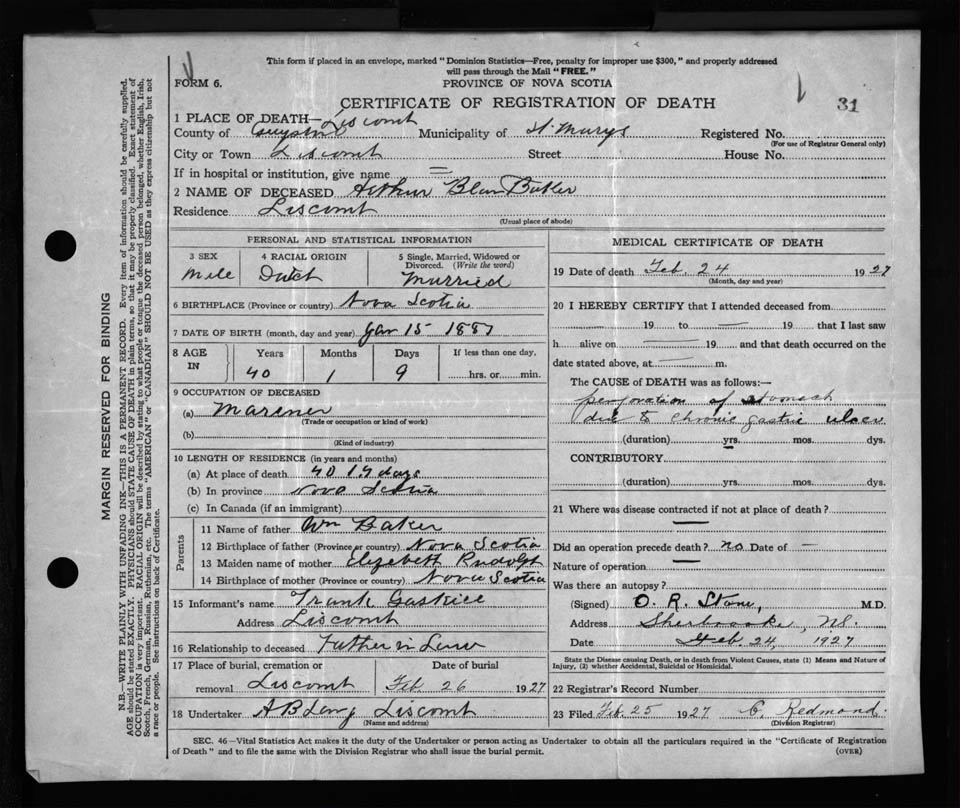 This form if placed in an envelope, marked "Dominion Statistics—Free, penalty for improper use $300," and properly addressed
will pass through the Mail "FREE."
FORM 6.
PROVINCE OF NOVA SCOTIA
31
CERTIFICATE OF REGISTRATION OF DEATH
1 PLACE OF DEATH— Liscomb
County of Guysboro Municipality of St. Marys Registered No.
(For use of Registrar General only)
City or Town Liscomb Street House No.
If in hospital or institution, give name
2 NAME OF DECEASED Arthur Baker
Residence Liscomb
(Usual place of abode)
PERSONAL AND STATISTICAL INFORMATION
3 SEX 4 RACIAL ORIGIN 5 Single, Married, Widowed or
Divorced. (Write the word)
Male Dutch Married
6 BIRTHPLACE (Province or country) Nova Scotia
7 DATE OF BIRTH (month, day and year) Jan 15 1887
8 AGE IN Years Months Days If less than one day,
40 1 9 hrs. or min.
9 OCCUPATION OF DECEASED
(a) Mariner
(Trade or occupation or kind of work)
(b)
(Kind of industry)
10 LENGTH OF RESIDENCE (in years and months)
(a) At place of death 40 days
(b) In province Nova Scotia
(c) In Canada (if an immigrant)
Parents
11 Name of father Wm Baker
12 Birthplace of father (Province or country) Nova Scotia
13 Maiden name of mother Elizebett Rudolph
14 Birthplace of mother (Province or country) Nova Scotia
15 Informant's name Frank
Address Liscomb
16 Relationship to deceased Father in Law
17 Place of burial, cremation or Date of burial
removal Liscomb Feb. 26 1927
18 Undertaker A B Liscomb
(Name and address)
MEDICAL CERTIFICATE OF DEATH
19 Date of death Feb. 24 1927
(Month, day and year)
20 I HEREBY CERTIFY that I attended deceased from
19 to 19 that I last saw
h alive on 19 and that death occurred on the
date stated above, at m.
The CAUSE of DEATH was as follows:—
perforation of stomach
due to chronic gastric ulcer
(duration) yrs. mos. dys.
CONTRIBUTORY
(duration) yrs. mos. dys.
21 Where was disease contracted if not at place of death?
Did an operation precede death? no Date of —
Nature of operation —
Was there an autopsy?
(Signed) O. R. Stone, M.D.
Address Sherbrooke, NS.
Date Feb. 24, 1927
State the Disease causing Death, or in death from Violent Causes, state (1) Means and Nature of
Injury, (2) whether Accidental, Suicidal or Homicidal.
22 Registrar's Record Number
23 Filed Feb. 25 1927 C. Redmond.
(Division Registrar)
SEC. 46—Vital Statistics Act makes it the duty of the Undertaker or person acting as Undertaker to obtain all the particulars required in the "Certificate of Registration
of Death" and to file the same with the Division Registrar who shall issue the burial permit.
(OVER)
MARGIN RESERVED FOR BINDING
N.B.—WRITE PLAINLY WITH UNFADING INK—THIS IS A PERMANENT RECORD. Every item of information should be carefully supplied.
AGE should be stated EXACTLY. PHYSICIANS should STATE CAUSE OF DEATH in plain terms, so that it may be properly classified. Exact statement of
OCCUPATION is very important. RACIAL ORIGIN will be described by stating to what people or tongue the deceased person belonged, whether English, Irish,
Scotch, French, German, Russian, Ruthenian, etc. The terms "AMERICAN" or "CANADIAN" SHOULD NOT BE USED as they express citizenship but not
a race or people. See instructions on back of Certificate.